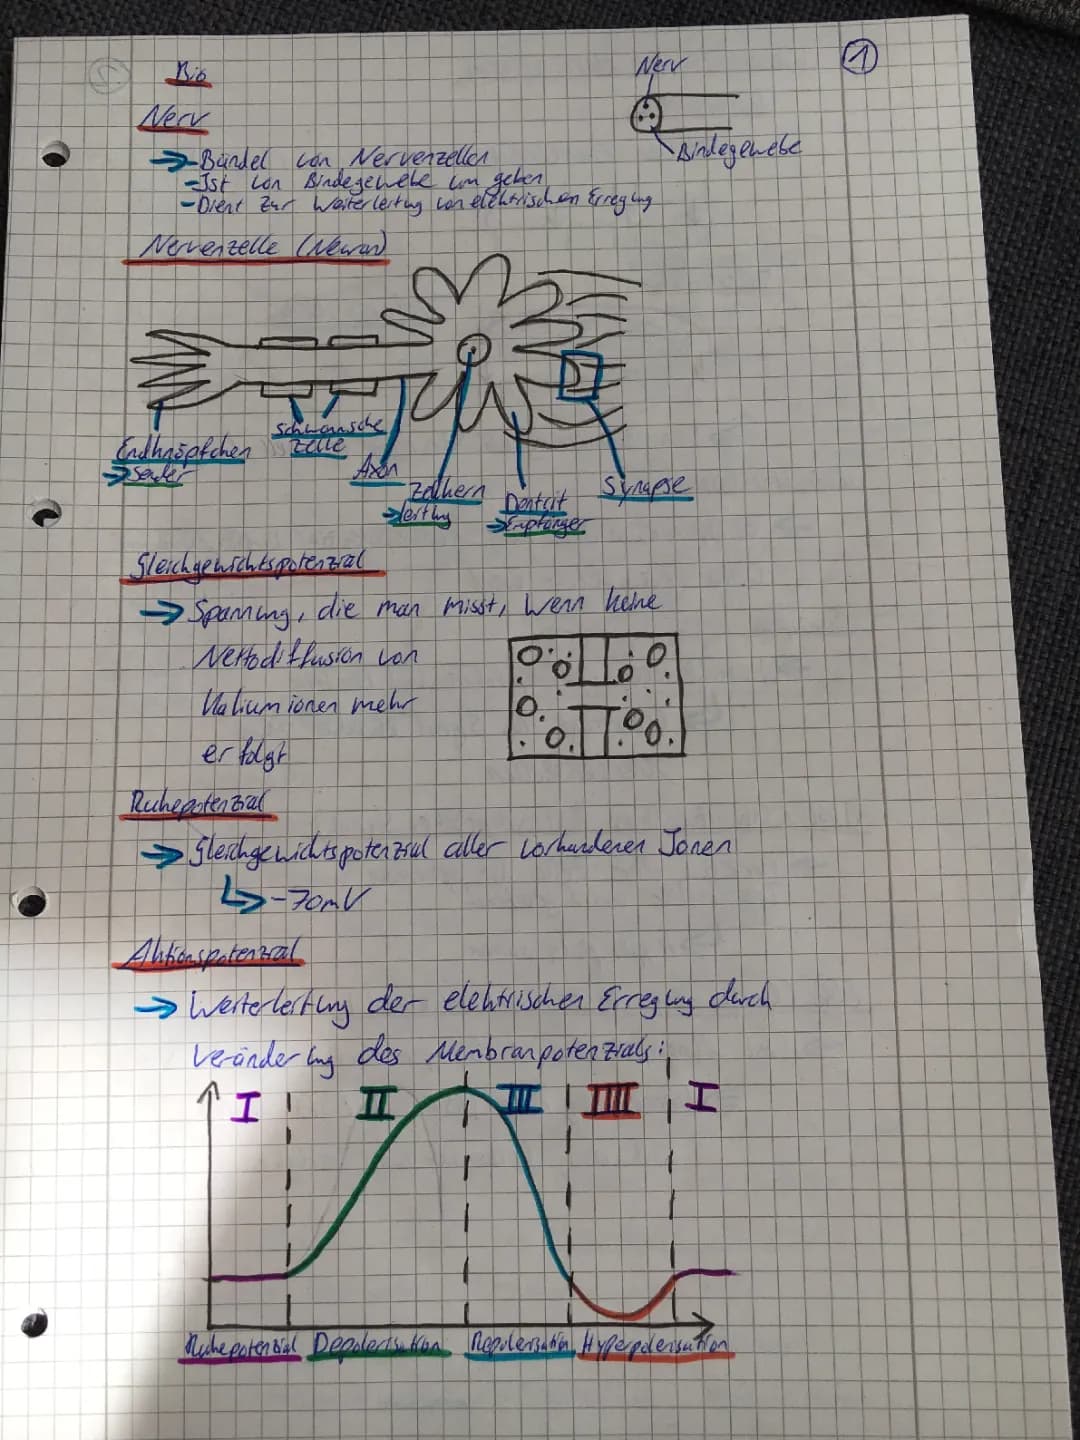 Bio
1
Nerv
Nerv
Bindegewebe
→ - Bündel von Nervenzellen
- Ist von Bindegewebe um geben
- Dient zur Weiterleitung von elektrischen Erregung
Nervenzelle (Neuron)
Endknöpfchen
→ Sender
Schwannsche
Zelle
Axon
Zellkern
→ Leitung
Dentrit
→ Empfänger
Synapse
Gleichgewichtspotenzial
→ Spannung, die man misst, wenn keine
Nettodiffusion von
Kaliumionen mehr
erfolgt
Ruhepotenzial
→ Gleichgewichtspotenzial aller vorhandenen Ionen
↳ -70mV
Aktionspotenzial
→ Weiterleitung der elektrischen Erregung durch
Veränderung des Membranpotenzials:
I II III IIII I
Ruhepotenzial Depolarisation Repolarisation Hyperpolarisation